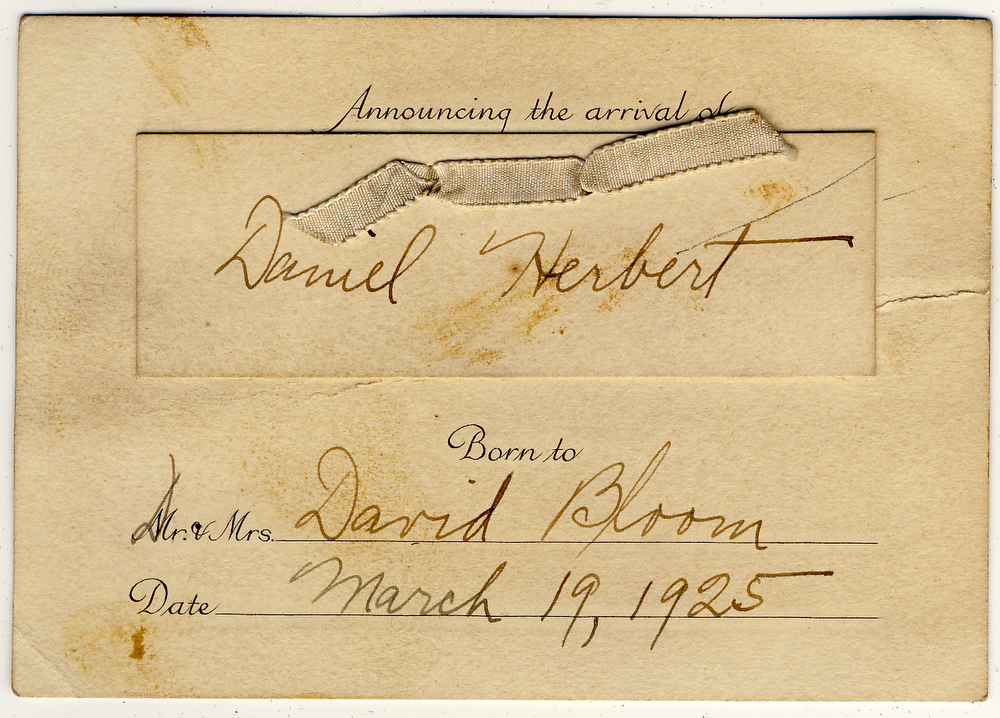 Announcing the arrival of
Daniel Herbert
Born to
Dr. & Mrs. David Bloom
Date March 19, 1925